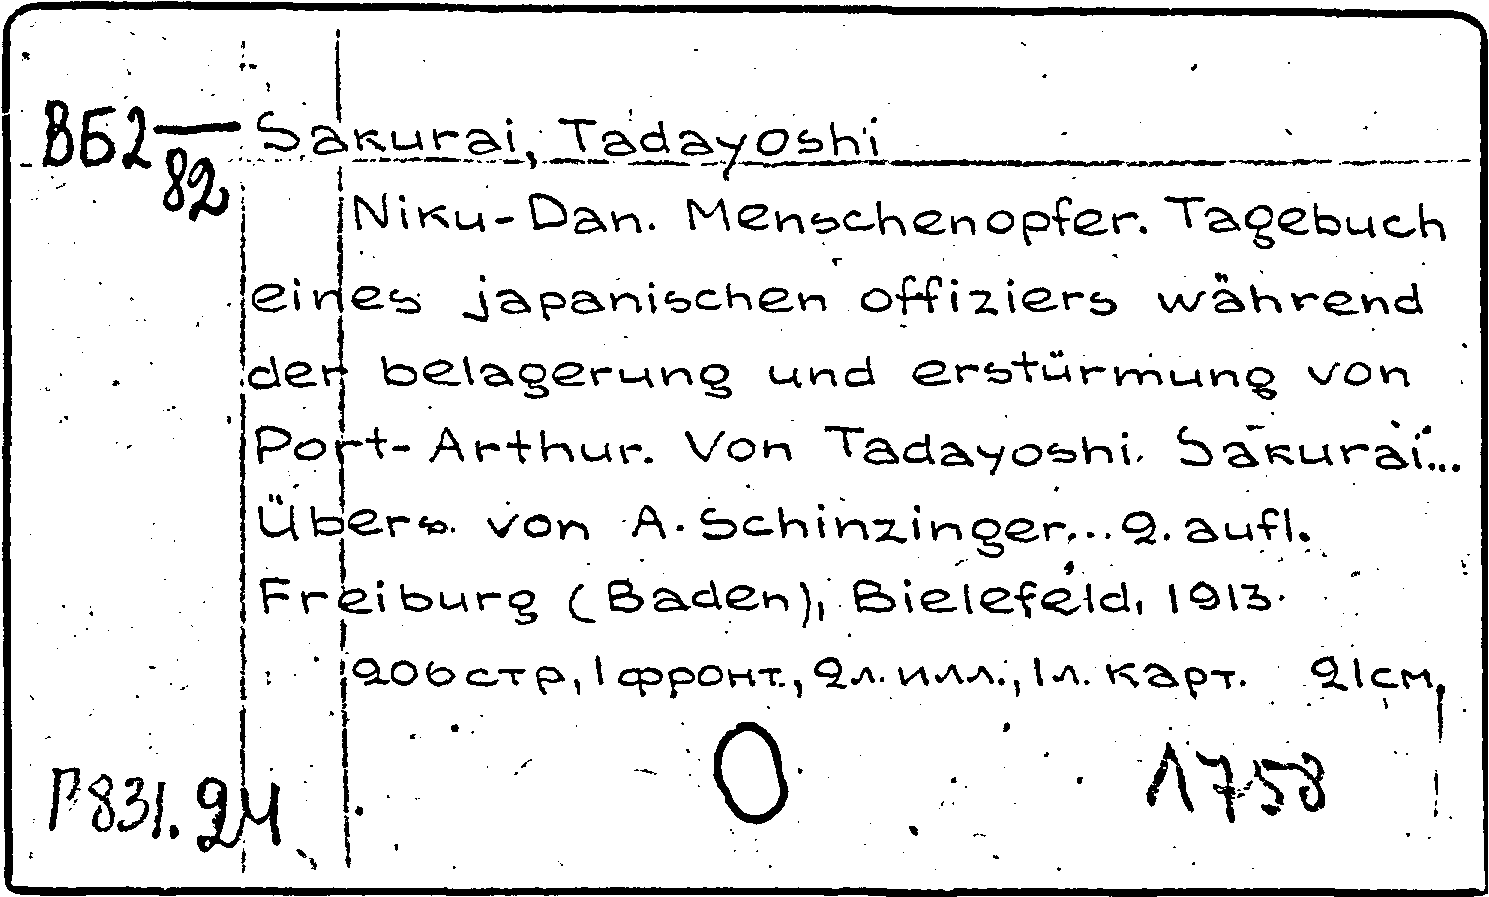 ВБ2— Sakurai, Tadayoshi
82
Niku-Dan. Menschenopfer. Tagebuch
eines japanischen offiziers während
der belagerung und erstürmung von
Port-Arthur. Von Tadayoshi Sakurai...
Übers. von A. Schinzinger... 2. aufl.
Freiburg (Baden), Bielefeld, 1913.
206 стр, 1 фронт., 2 л. илл., 1 л. карт. 21 см.
P831.24
Л758